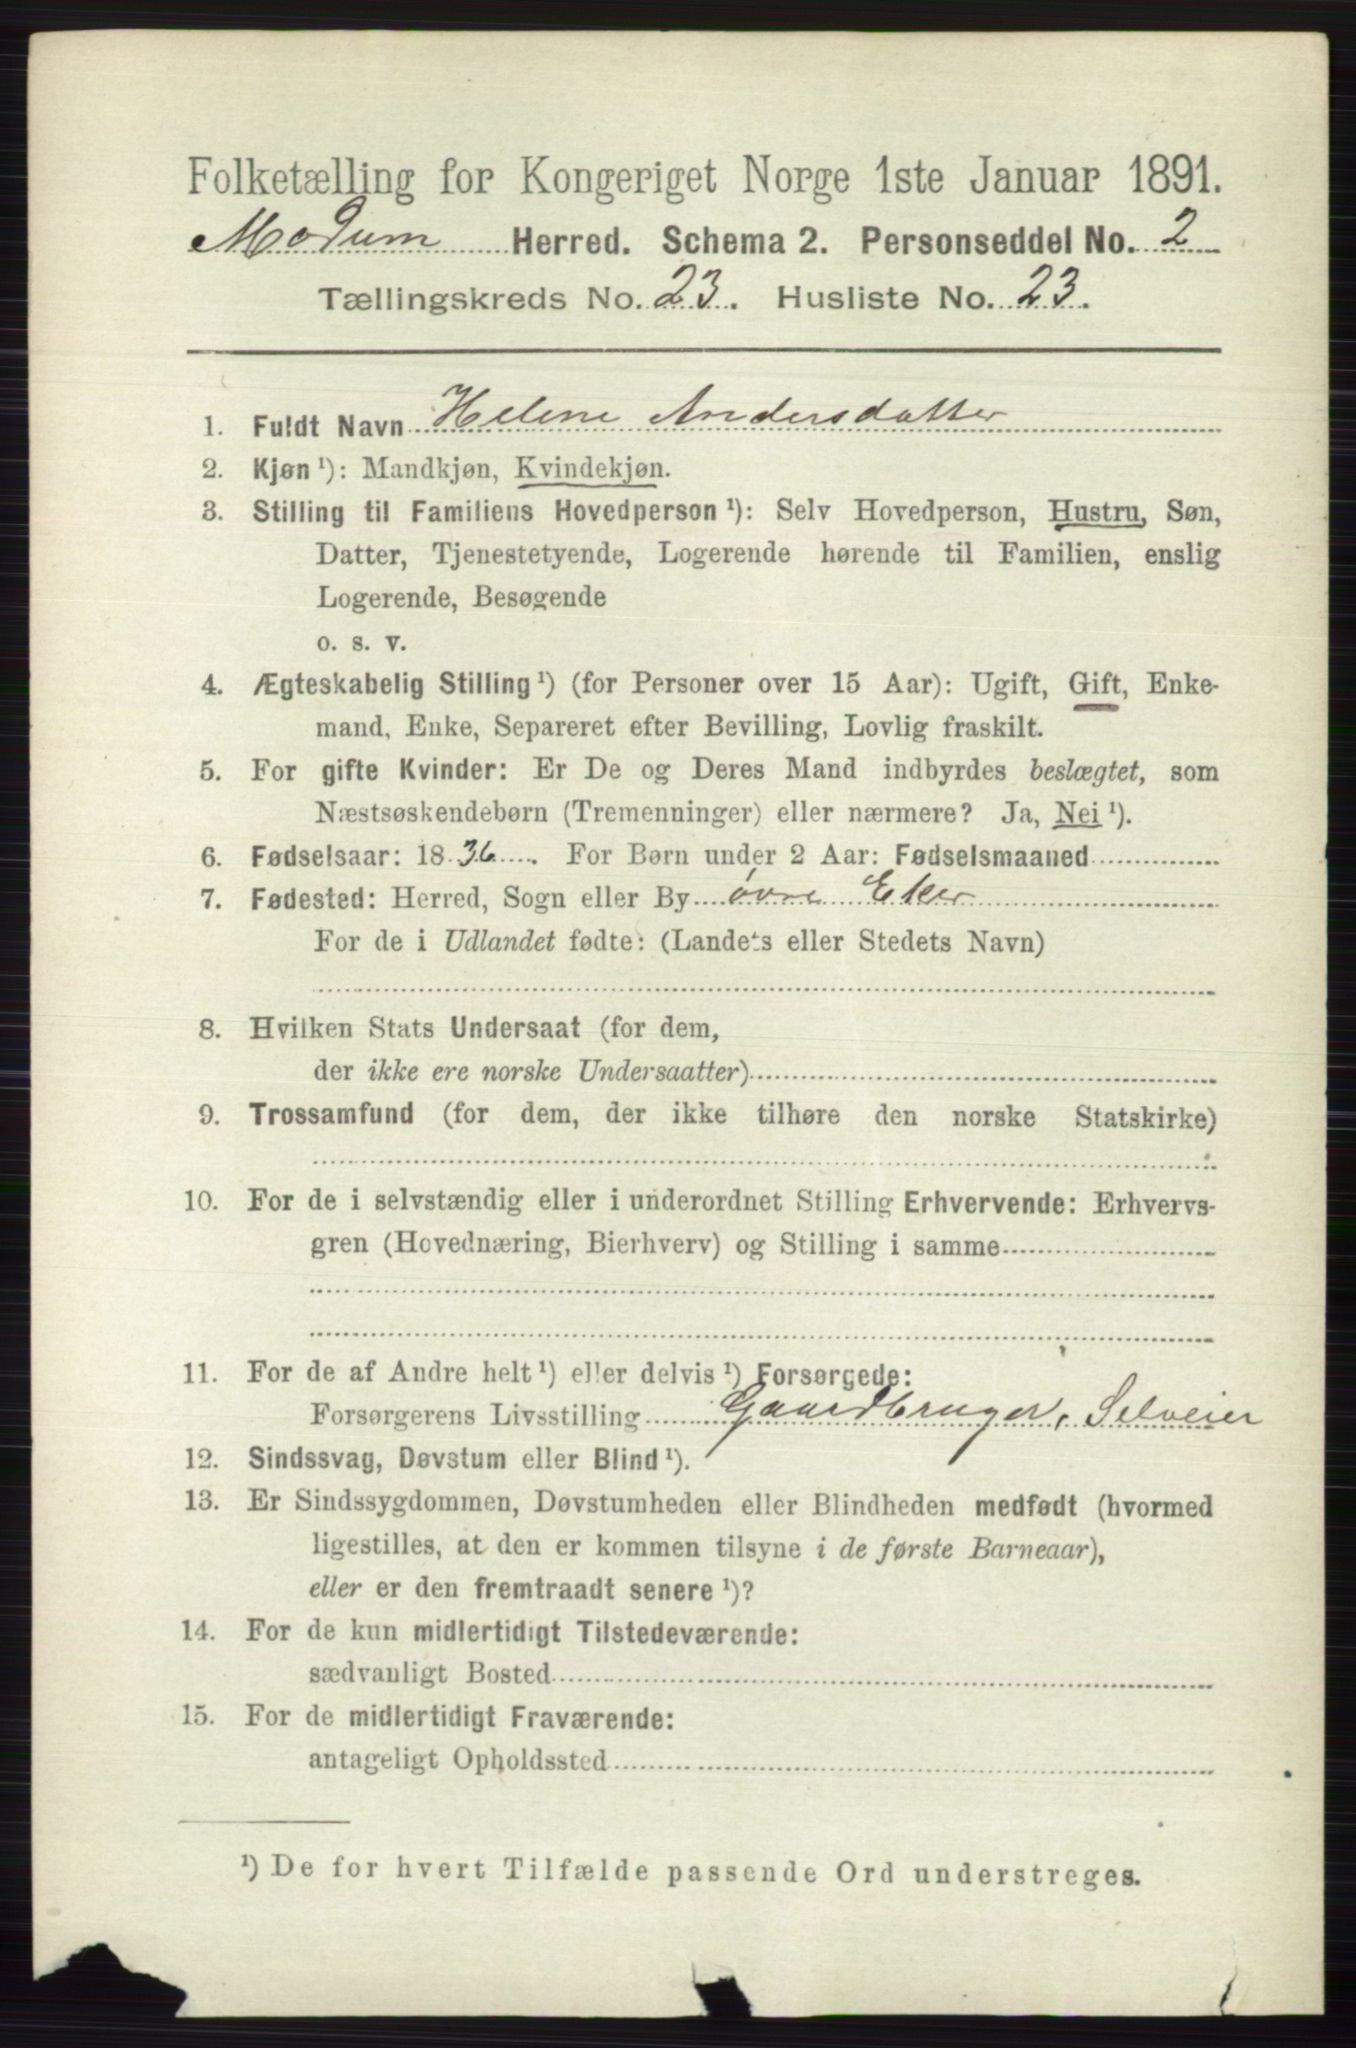 Folketælling for Kongeriget Norge 1ste Januar 1891.
Modum Herred. Schema 2. Personseddel No. 2
Tællingskreds No. 23. Husliste No. 23.
1. Fuldt Navn Helene Andersdatter
2. Kjøn ¹): Mandkjøn, Kvindekjøn.
3. Stilling til Familiens Hovedperson ¹): Selv Hovedperson, Hustru, Søn,
Datter, Tjenestetyende, Logerende hørende til Familien, enslig
Logerende, Besøgende
o. s. v.
4. Ægteskabelig Stilling ¹) (for Personer over 15 Aar): Ugift, Gift, Enke-
mand, Enke, Separeret efter Bevilling, Lovlig fraskilt.
5. For gifte Kvinder: Er De og Deres Mand indbyrdes beslægtet, som
Næstsøskendebørn (Tremenninger) eller nærmere? Ja, Nei ¹).
6. Fødselsaar: 1836. For Børn under 2 Aar: Fødselsmaaned
7. Fødested: Herred, Sogn eller By øvre Eker
For de i Udlandet fødte: (Landets eller Stedets Navn)
8. Hvilken Stats Undersaat (for dem,
der ikke ere norske Undersaatter)
9. Trossamfund (for dem, der ikke tilhøre den norske Statskirke)
10. For de i selvstændig eller i underordnet Stilling Erhvervende: Erhvervs-
gren (Hovednæring, Bierhverv) og Stilling i samme
11. For de af Andre helt ¹) eller delvis ¹) Forsørgede:
Forsørgerens Livsstilling Gaardbruger, Selveier
12. Sindssvag, Døvstum eller Blind ¹).
13. Er Sindssygdommen, Døvstumheden eller Blindheden medfødt (hvormed
ligestilles, at den er kommen tilsyne i de første Barneaar),
eller er den fremtraadt senere ¹)?
14. For de kun midlertidigt Tilstedeværende:
sædvanligt Bosted
15. For de midlertidigt Fraværende:
antageligt Opholdssted
¹) De for hvert Tilfælde passende Ord understreges.